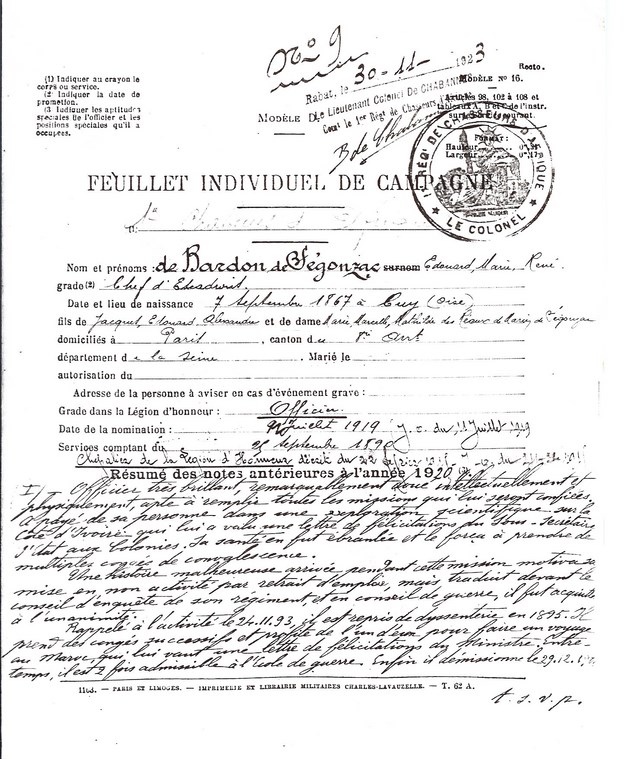 N° 9
(1) Indiquer au crayon le
corps ou service.
(2) Indiquer la date de
promotion.
(3) Indiquer les aptitudes
spéciales de l'officier et les
positions spéciales qu'il a
occupées.
Rabat, le 30-11-1923
Le Lieutenant Colonel DE CHABANN
Comt le 1er Régt de Chasseurs
B de Chabann
Recto.
MODÈLE N° 16.
Articles 98, 102 à 108 et
tableaux A, B et C de l'instr.
Format:
Hauteur
Largeur
MODÈLE D
1er RÉGt DE CHASSEURS D'AFRIQUE
★ LE COLONEL ★
FEUILLET INDIVIDUEL DE CAMPAGNE
Nom et prénoms : de Bardon de Ségonzac surnom Edouard, Marie, René.
grade (2) Chef d'Escadrons
Date et lieu de naissance 7 Septembre 1867 à Cuy (Oise)
fils de Jacques, Edouard, Alexandre et de dame Marie, Marcelle, Mathilde des
domiciliés à Paris, canton du Arrt
département de la Seine. Marié le
autorisation du
Adresse de la personne à aviser en cas d'événement grave :
Grade dans la Légion d'honneur : Officier
Date de la nomination : Juillet 1919 J.O. du 11 Juillet 1919
Services comptant du Septembre 1890
Chevalier de la Légion d'Honneur décret du
Résumé des notes antérieures à l'année 1920
I) Officier très brillant, remarquablement doué intellectuellement et
physiquement, apte à remplir toutes les missions qui lui seront confiées.
A payé de sa personne dans une exploration scientifique sur la
Côte d'Ivoire qui lui a valu une lettre de félicitations du Sous-Secrétaire
d'Etat aux Colonies. Sa santé en fut ébranlée et le força à prendre de
multiples congés de convalescence.
Une histoire malheureuse arrivée pendant cette mission motiva sa
mise en non activité par retrait d'emploi, mais traduit devant le
conseil d'enquête de son régiment, et en conseil de guerre, il fut acquitté
à l'unanimité.
Rappelé à l'activité le 24.11.93, il est repris de dyssenterie en 1895. Il
prend des congés successifs et profite de l'un d'eux pour faire un voyage
au Maroc, qui lui vaut une lettre de félicitations du Ministre. Entre-
temps, il est 2 fois admissible à l'école de guerre. Enfin il démissionne le 29.12.
1103. — PARIS ET LIMOGES. — IMPRIMERIE ET LIBRAIRIE MILITAIRES CHARLES-LAVAUZELLE. — T. 62 A.
t. s. v. p.